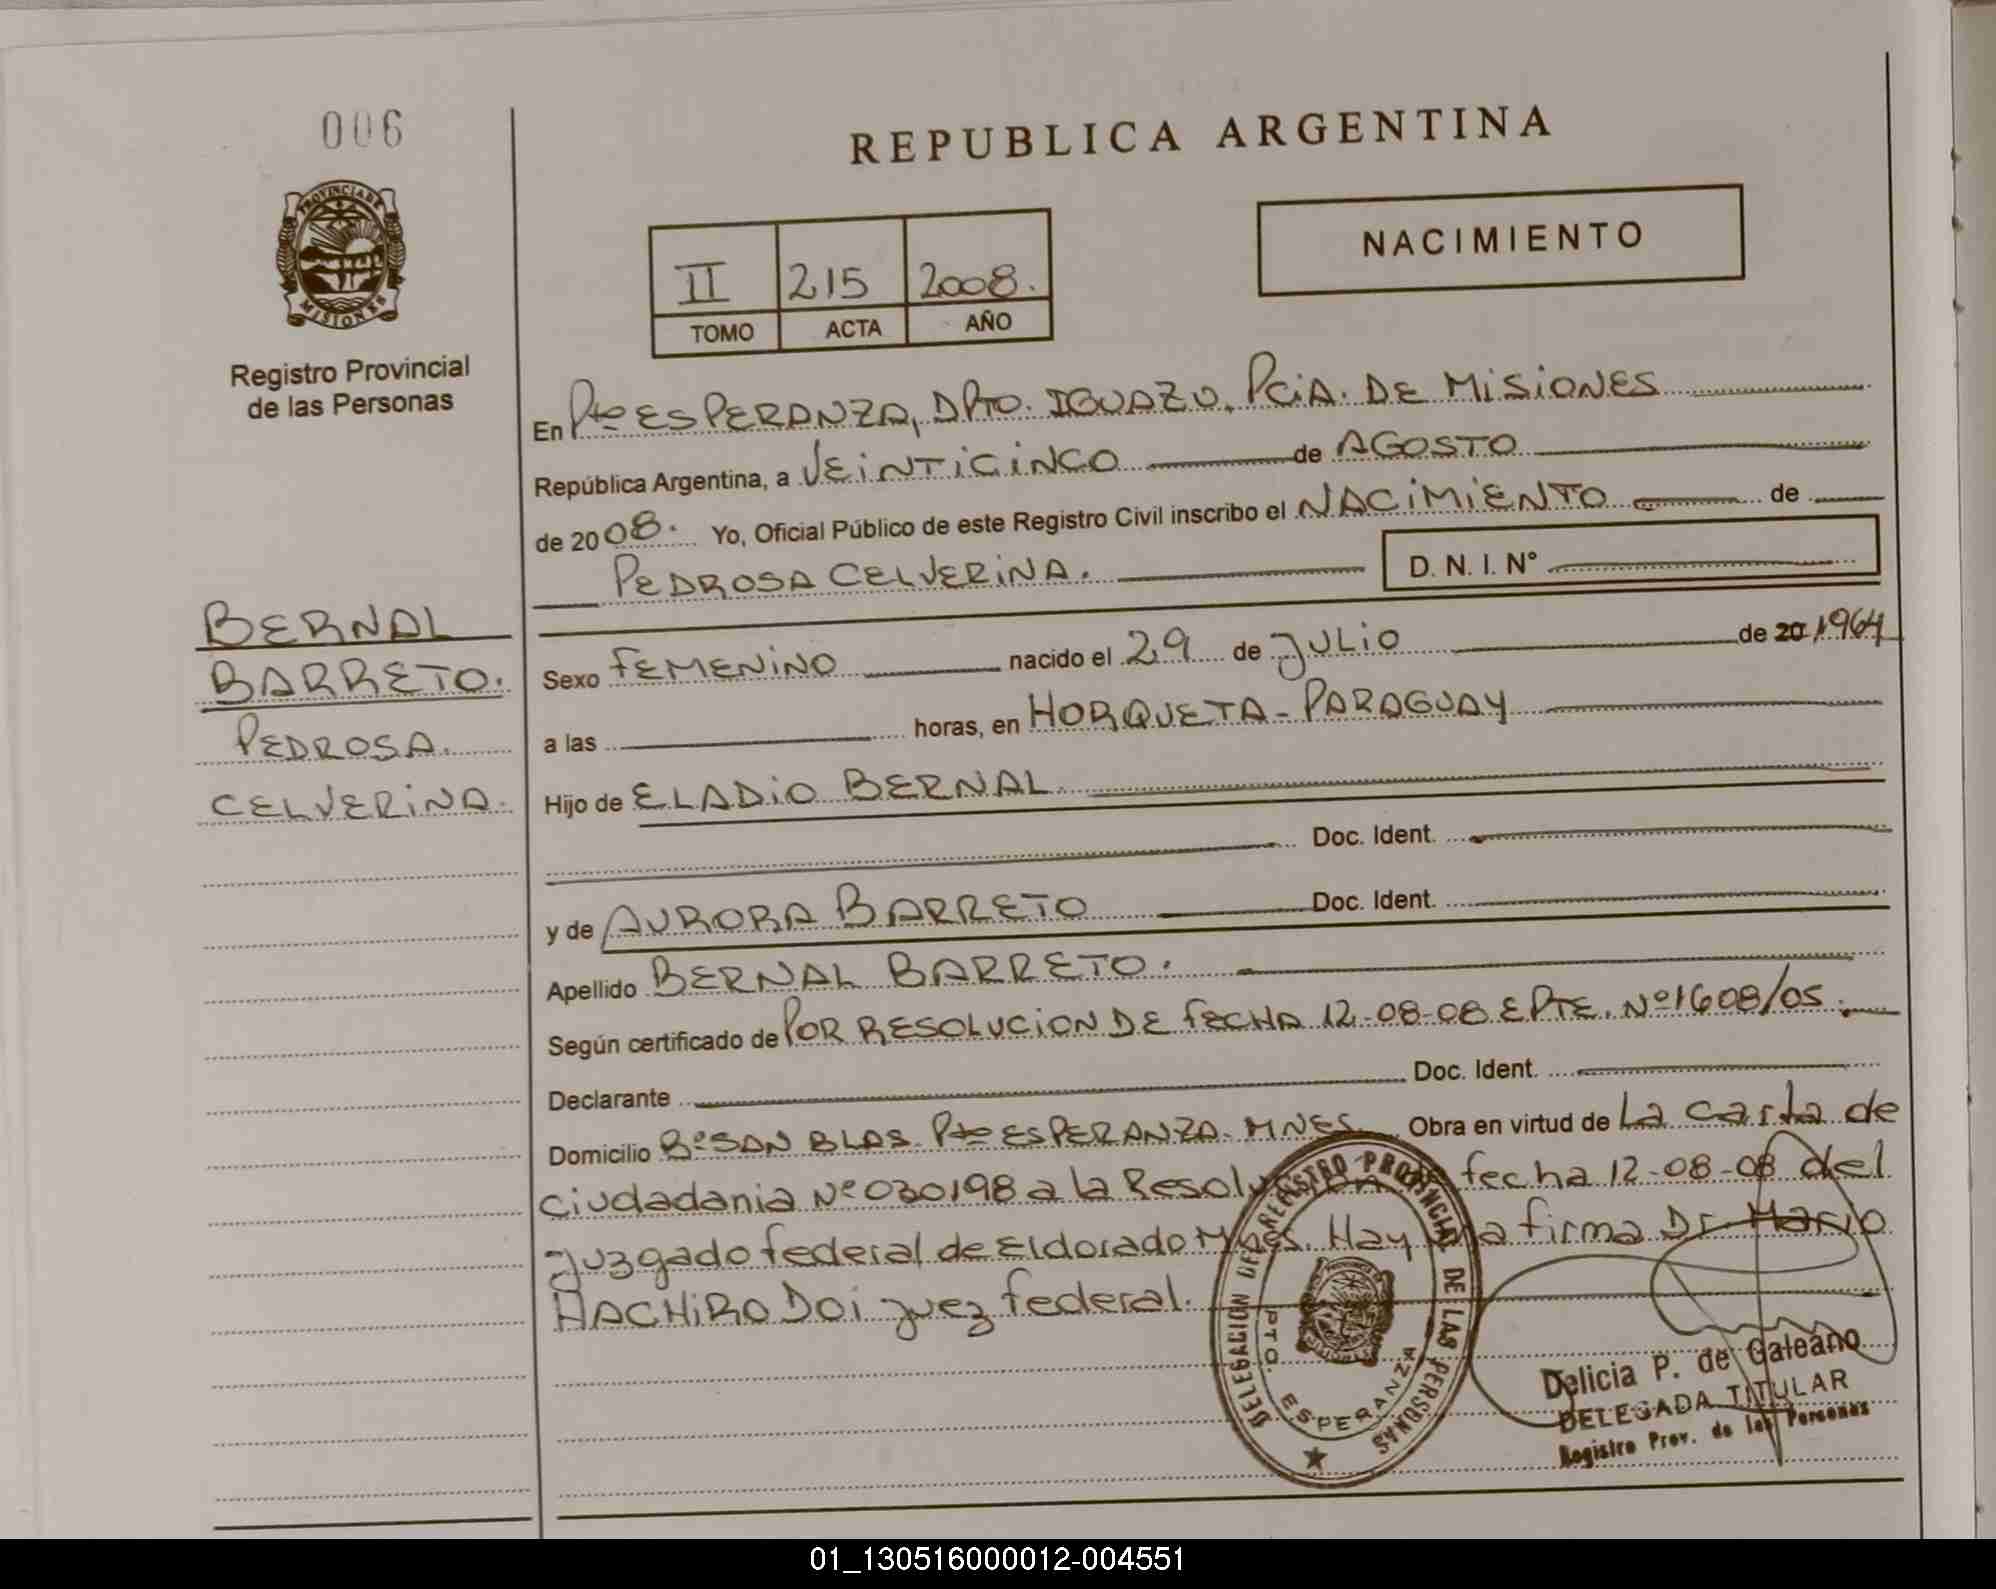 006
REPUBLICA ARGENTINA
PROVINCIA DE MISIONES
NACIMIENTO
II 215 2008.
TOMO ACTA AÑO
Registro Provincial
de las Personas
En Pto ESPERANZA, DPTO. IGUAZU, PCiA. DE MiSiONES
República Argentina, a VEiNTiCiNCO de AGOSTO
de 2008. Yo, Oficial Público de este Registro Civil inscribo el NACiMiENTO de
PEDROSA CELVERiNA. D. N. I. N°
BERNAL
BARRETO.
PEDROSA
CELVERiNA.
Sexo FEMENiNO nacido el 29 de JULiO de 20 1964
a las horas, en HORQUETA - PARAGUAY
Hijo de ELADiO BERNAL
Doc. Ident.
y de AURORA BARRETO Doc. Ident.
Apellido BERNAL BARRETO.
Según certificado de POR RESOLUCiON DE fECHA 12-08-08 EPTE. Nº1608/05.
Declarante Doc. Ident.
Domicilio Bº SAN BLAS Pto ESPERANZA. MNES. Obra en virtud de La carta de
ciudadania Nº 030198 a la Resolución de fecha 12-08-08 del
juzgado federal de Eldorado Mnes. Hay una firma Dr. Mario
HACHiRO DOi juez federal.
DELEGACION DEL REGISTRO PROVINCIAL DE LAS PERSONAS
PTO. ESPERANZA
Delicia P. de Galeano
DELEGADA TITULAR
Registro Prov. de las Personas
01_130516000012-004551